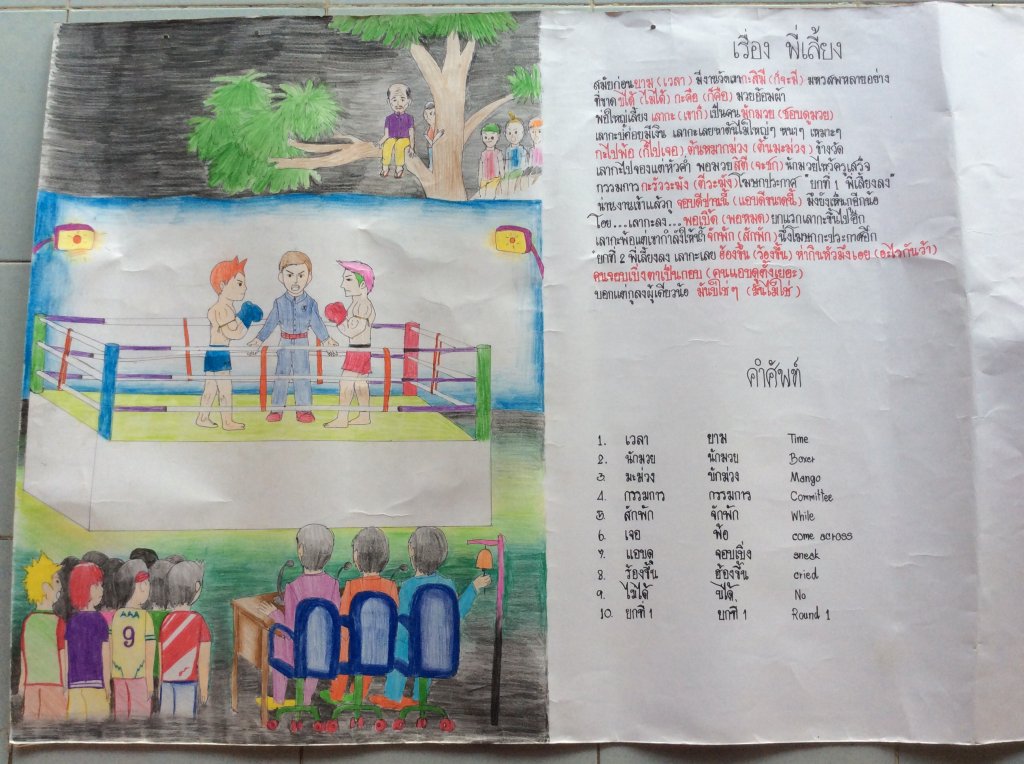 เรื่อง พี่เลี้ยง
สมัยก่อนยาม (เวลา) มีงานวัดเขากะสิมี (ก็จะมี) มหรสพหลายอย่าง
ที่ขาดบ่ได้ (ไม่ได้) กะคือ (ก็คือ) มวยอ้อมผ้า
พ่อใหญ่เลี้ยง เลากะ (เขาก็) เป็นคนมักมวย (ชอบดูมวย)
เลากะบ่ค่อยมีเงิน เลากะเลยหาต้นไม้ใหญ่ๆ หนาๆ เหมาะๆ
กะไปพ้อ (ก็ไปเจอ) ต้นหมากม่วง (ต้นมะม่วง) ข้างวัด
เลากะไปจองแต่หัวค่ำ พอมวยสิตี (จะชก) นักมวยไหว้ครูเสร็จ
กรรมการกะรัวระฆัง (ตีระฆัง) โฆษกประกาศ "ยกที่ 1 พี่เลี้ยงลง"
ผ่านงานเข้าแล้วกู จอบดีปานนี้ (แอบดีขนาดนี้) มึงยังเห็นกูอีกน้อ
โอย...เลากะลง... พอเบิ้ด (พอหมด) ยกแรกเลากะขึ้นไปอีก
เลากะพ้อแต่เขากำลังให้น้ำ จักพัก (สักพัก) นึงโฆษกกะประกาศอีก
ยกที่ 2 พี่เลี้ยงลง เลากะเลย ฮ้องขึ้น (ร้องขึ้น) ห่ากินหัวมึงเอย (อะไรกันว้า)
คนจอบเบิ่งตาเป็นกอบ (คนแอบดูตั้งเยอะ)
บอกแต่กูลงผู้เดียวน้อ มันบ่ใช่ๆ (มันไม่ใช่)
คำศัพท์
1. เวลา ยาม Time
2. นักมวย นักมวย Boxer
3. มะม่วง บักม่วง Mango
4. กรรมการ กรรมการ Committee
5. สักพัก จักพัก While
6. เจอ พ้อ come across
7. แอบดู จอบเบิ่ง sneak
8. ร้องขึ้น ฮ้องขึ้น cried
9. ไม่ได้ บ่ได้ No
10. ยกที่ 1 ยกที่ 1 Round 1
AAA
9